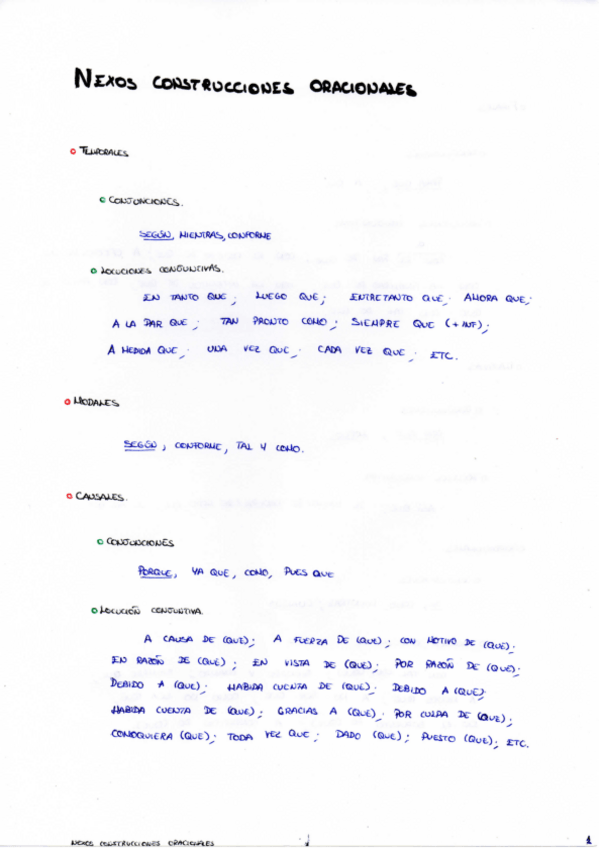 NEXOS CONSTRUCCIONES ORACIONALES
TEMPORALES
CONJUNCIONES.
SEGÚN, MIENTRAS, CONFORME
LOCUCIONES CONJUNTIVAS.
EN TANTO QUE; LUEGO QUE; ENTRETANTO QUE; AHORA QUE;
A LA PAR QUE; TAN PRONTO COMO; SIEMPRE QUE (+INF);
A MEDIDA QUE; UNA VEZ QUE; CADA VEZ QUE; ETC.
MODALES
SEGÚN, CONFORME, TAL Y COMO.
CAUSALES.
CONJUNCIONES
PORQUE, YA QUE, COMO, PUES QUE
LOCUCIÓN CONJUNTIVA.
A CAUSA DE (QUE); A FUERZA DE (QUE); CON MOTIVO DE (QUE);
EN RAZÓN DE (QUE); EN VISTA DE (QUE); POR RAZÓN DE (QUE);
DEBIDO A (QUE); HABIDA CUENTA DE (QUE); DEBIDO A (QUE);
HABIDA CUENTA DE (QUE); GRACIAS A (QUE); POR CULPA DE (QUE);
COMOQUIERA (QUE); TODA VEZ QUE; DADO (QUE); PUESTO (QUE); ETC.
NEXOS CONSTRUCCIONES ORACIONALES 1